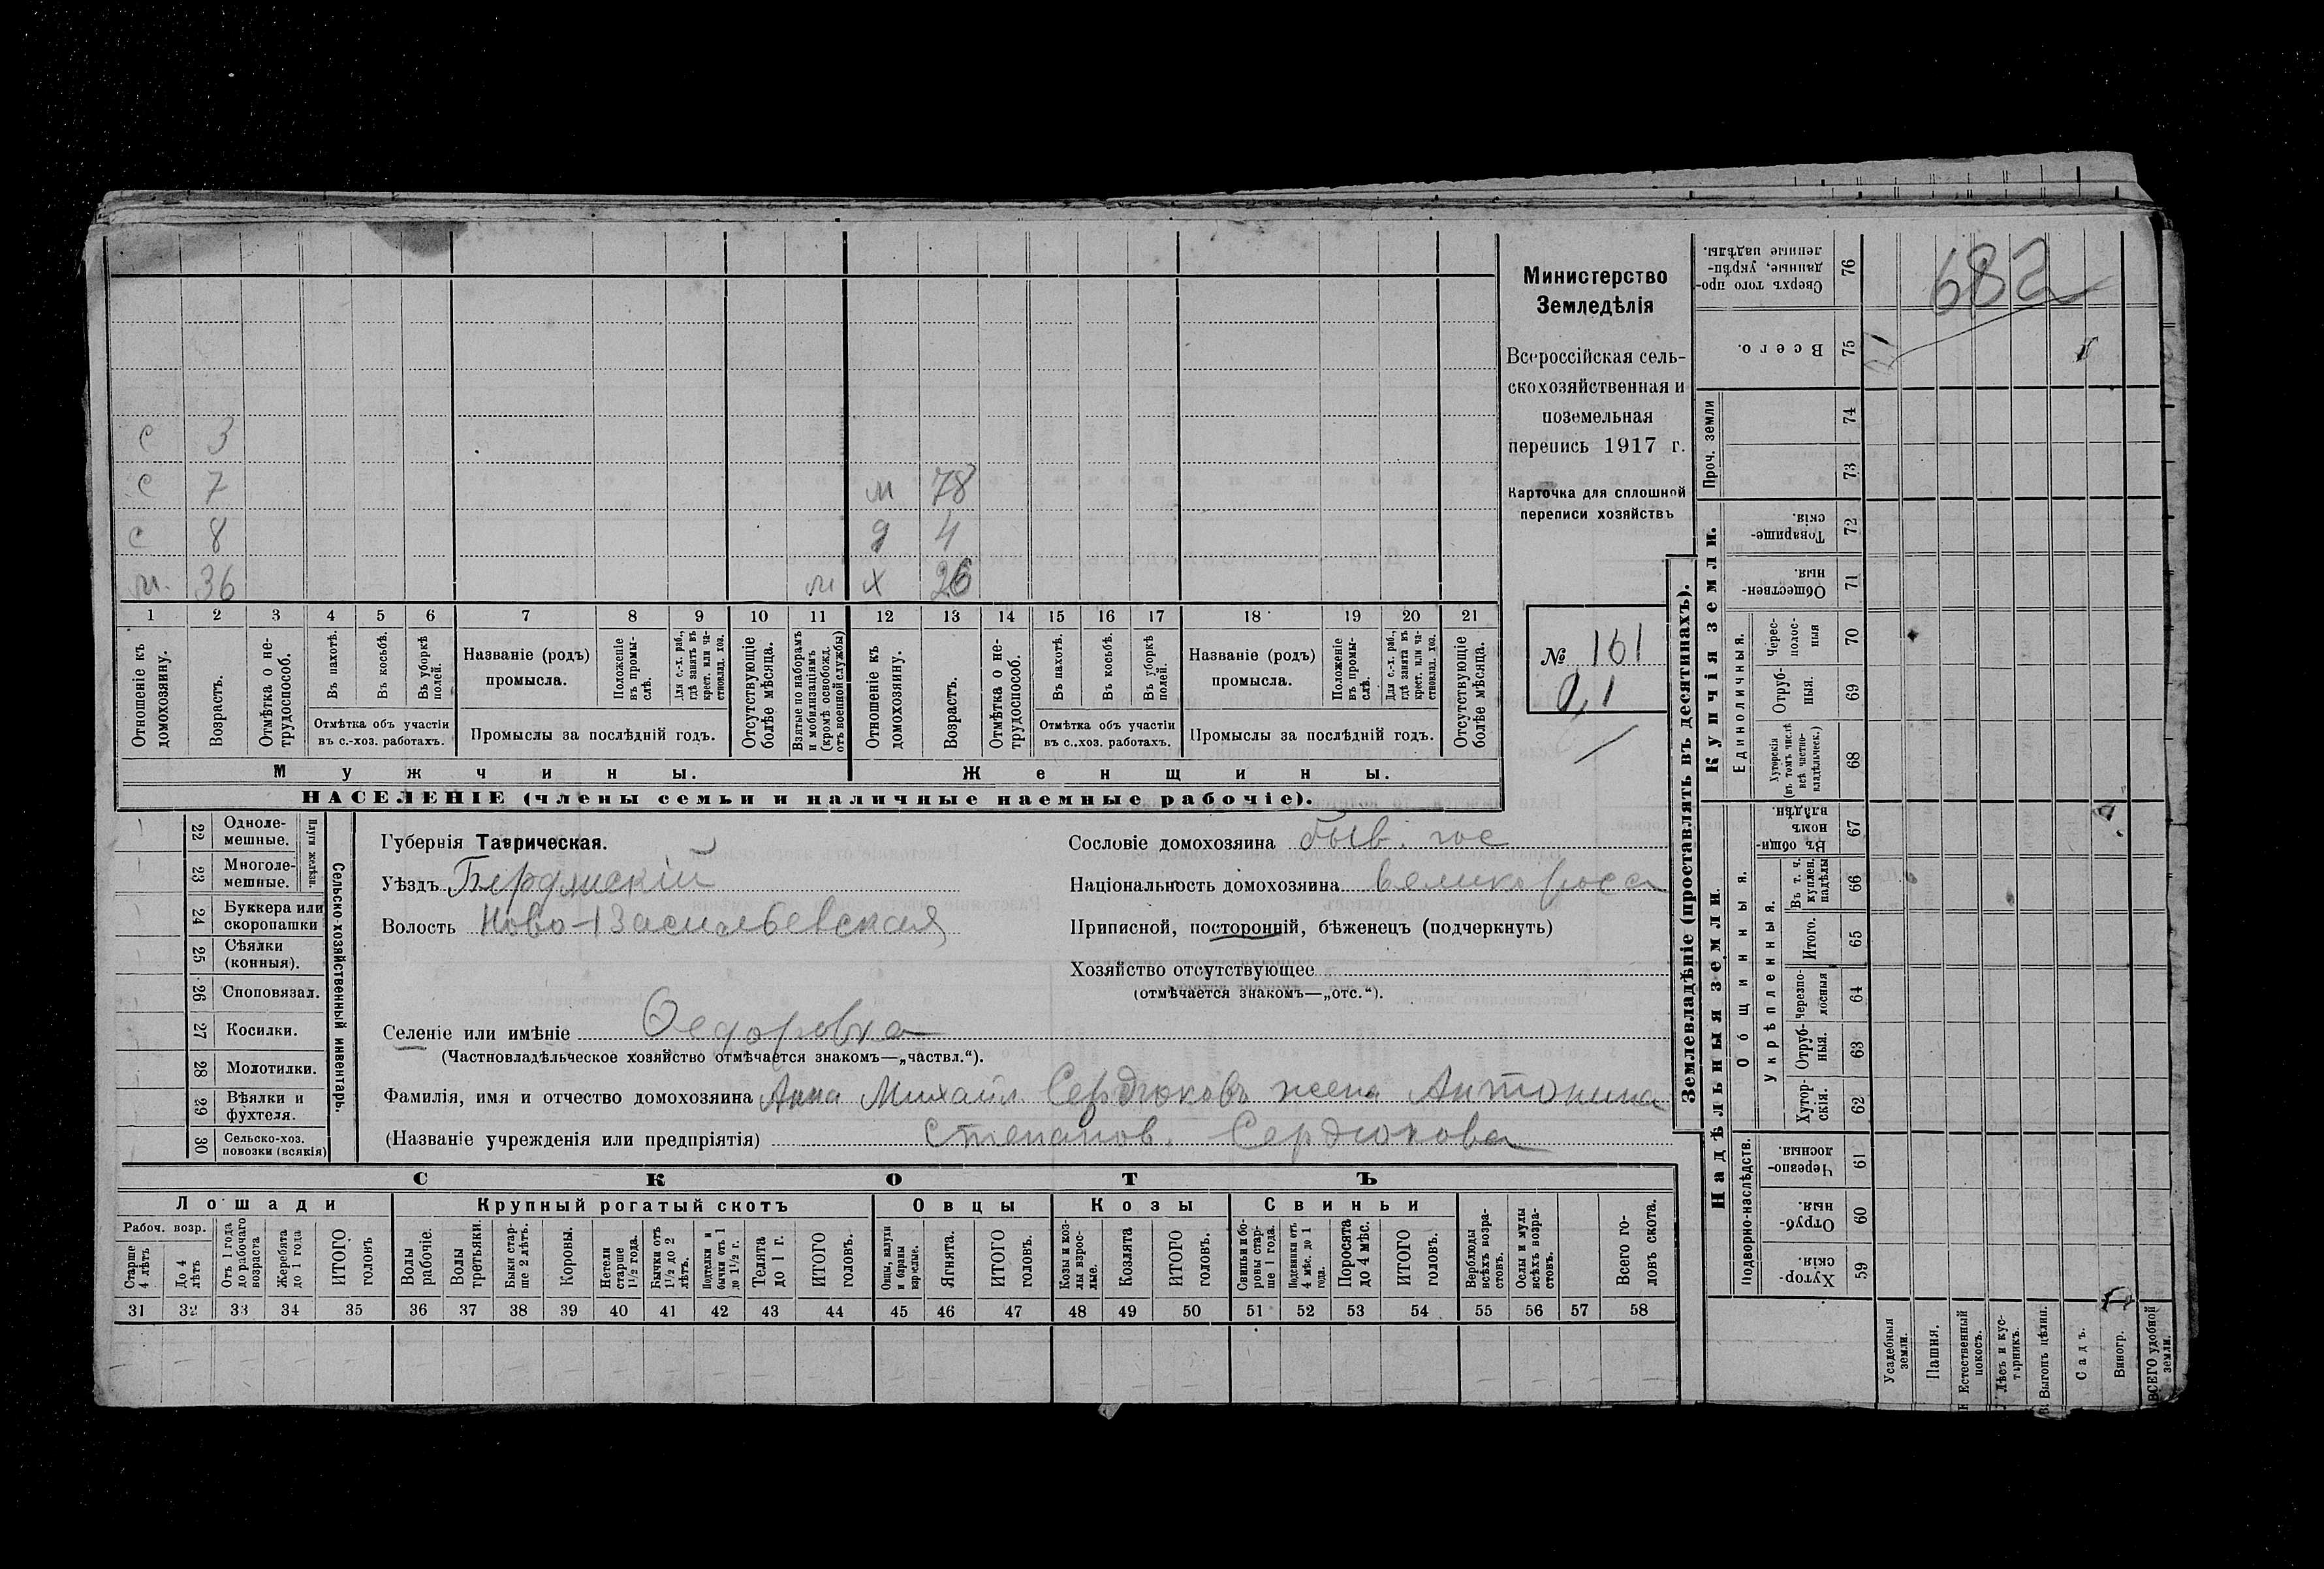 с 3
с 7 м 78
с 8 д 4
м. 36 м х 26
1 2 3 4 5 6 7 8 9 10 11 12 13 14 15 16 17 18 19 20 21
Отношеніе къ домохозяину.
Возрастъ.
Отмѣтка о не-трудоспособ.
Въ пахотѣ.
Въ косьбѣ.
Въ уборкѣ полей.
Отмѣтка объ участіи
въ с.-хоз. работахъ.
Названіе (родъ)
промысла.
Положеніе въ промы-слѣ.
Для с.-х. раб., гдѣ занятъ въ крест. или ча-ствовлад. хоз.
Промыслы за послѣдній годъ.
Отсутствующіе болѣе мѣсяца.
Взятые по наборамъ и мобилизаціямъ (кромѣ освобожд. отъ военной службы)
Отношеніе къ домохозяину.
Возрастъ.
Отмѣтка о не-трудоспособ.
Въ пахотѣ.
Въ косьбѣ.
Въ уборкѣ полей.
Отмѣтка объ участіи
въ с..хоз. работахъ.
Названіе (родъ)
промысла.
Положеніе въ промы-слѣ.
Для с.-х. раб., гдѣ занята въ крест. или ча-ствовлад. хоз.
Промыслы за послѣдній годъ.
Отсутствующіе болѣе мѣсяца.
Мужчины. Женщины.
НАСЕЛЕНІЕ (члены семьи и наличные наемные рабочіе).
Министерство
Земледѣлія
Всероссійская сель-
скохозяйственная и
поземельная
перепись 1917 г.
Карточка для сплошной
переписи хозяйствъ
№ 161
0,1
Сельско-хозяйственный инвентарь.
Плуги желѣзн.
22 Одноле-мешные.
23 Многоле-мешные.
24 Буккера или скоропашки
25 Сѣялки (конныя).
26 Сноповязал.
27 Косилки.
28 Молотилки.
29 Вѣялки и фухтеля.
30 Сельско-хоз. повозки (всякія)
Губернія Таврическая.
Уѣздъ Бердянскій
Волость Ново-Васильевская
Селеніе или имѣніе Ѳедоровка
(Частновладѣльческое хозяйство отмѣчается знакомъ—„частвл.“).
Сословіе домохозяина быв. гос
Національность домохозяина великоросс
Приписной, посторонній, бѣженецъ (подчеркнуть)
Хозяйство отсутствующее
(отмѣчается знакомъ—„отс.“).
Фамилія, имя и отчество домохозяина Анна Михайл. Сердюковъ жена Антонина
(Названіе учрежденія или предпріятія) Степанов. Сердюкова
СКОТЪ
Лошади Крупный рогатый скотъ Овцы Козы Свиньи
Рабоч. возр.
Старше 4 лѣтъ
До 4 лѣтъ
Отъ 1 года до рабочаго возраста
Жеребята до 1 года
ИТОГО головъ
Волы рабочіе.
Волы третьяки.
Быки стар-ше 2 лѣтъ.
Коровы.
Нетели старше 1½ года.
Бычки отъ 1½ до 2 лѣтъ.
Подтелки и бычки отъ 1 до 1½ г.
Телята до 1 г.
ИТОГО головъ.
Овцы, валухи и бараны взрослые.
Ягнята.
ИТОГО головъ.
Козы и коз-лы взрос-лые.
Козлята
ИТОГО головъ.
Свиньи и бо-ровы стар-ше 1 года.
Подсвинки отъ 4 мѣс. до 1 года.
Поросята до 4 мѣс.
ИТОГО головъ.
Верблюды всѣхъ возра-стовъ.
Ослы и мулы всѣхъ возра-стовъ.
Всего го-ловъ скота.
31 32 33 34 35 36 37 38 39 40 41 42 43 44 45 46 47 48 49 50 51 52 53 54 55 56 57 58
Землевладѣніе (проставлять въ десятинахъ).
682
Сверхъ того про-данные, укрѣп-ленные надѣлы. 76
Всего. 75
Проч. земли 74
73
Купчія земли.
Товарище-скія. 72
Обществен-ныя. 71
Единоличныя.
Черес-полос-ныя 70
Отруб-ныя. 69
Хуторскія (въ томъ числѣ всѣ частно-владѣльческ.) 68
Надѣльныя земли.
Общинныя.
Въ общин-номъ владѣн. 67
Укрѣпленныя.
Въ т. ч. куплен. надѣлы 66
Итого. 65
Черезпо-лосныя 64
Отруб-ныя. 63
Хутор-скія. 62
Подворно-наслѣдств.
Черезпо-лосныя. 61
Отруб-ныя. 60
Хутор-скія. 59
Усадебныя земли.
Пашня.
Естественный покосъ.
Лѣсъ и кус-тарникъ.
Выгонъ цѣлин.
Садъ.
Виногр.
ВСЕГО удобной земли.